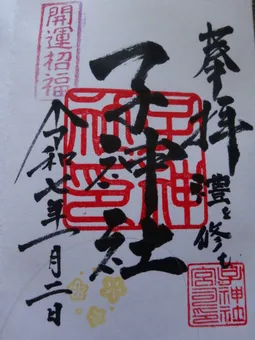 奉拝
禮を修む
子神社
開運招福
令和七年一月二日
子神社
宮司之印